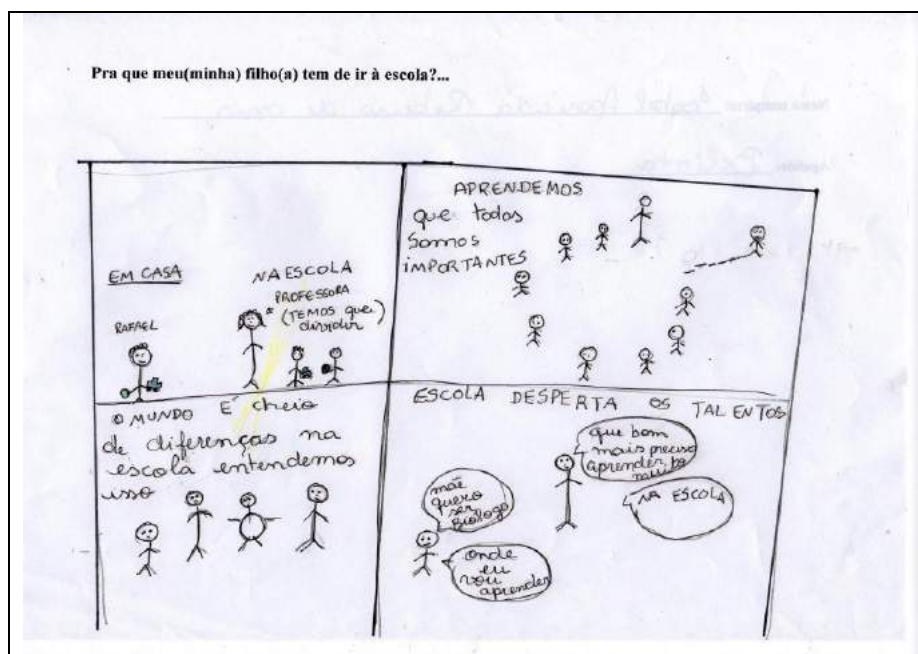 Pra que meu(minha) filho(a) tem de ir à escola?...
EM CASA
RAFAEL
NA ESCOLA
PROFESSORA
(TEMOS que
dividir)
APRENDEMOS
que todos
somos
IMPORTANTES
O MUNDO É cheio
de diferenças na
escola entendemos
isso
ESCOLA DESPERTA OS TALENTOS
mãe
quero
ser
Biólogo
onde
eu
vou
aprender
que bom
mais precisa
aprender
NA ESCOLA